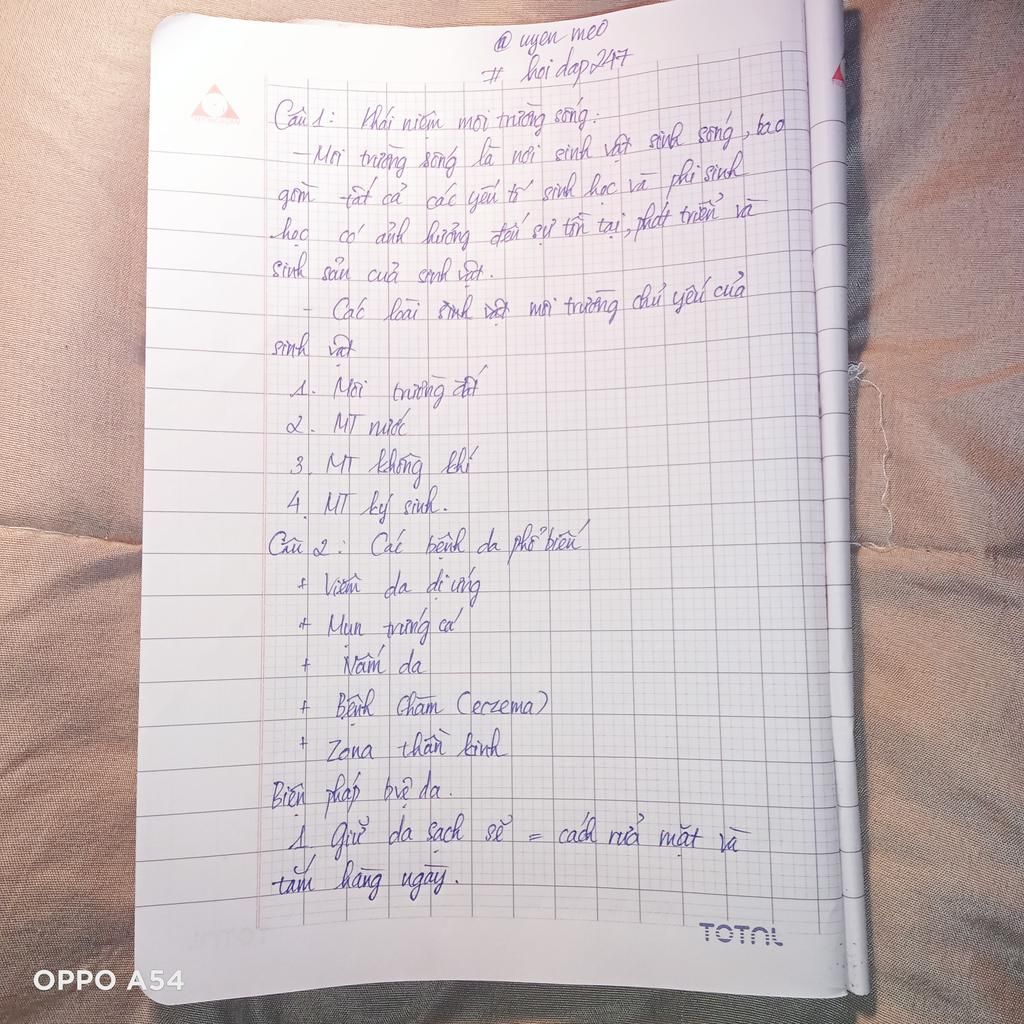 @ uyen meo
# hoi dap247
Câu 1: Khái niệm môi trường sống:
- Môi trường sống là nơi sinh vật sinh sống, bao
gồm tất cả các yếu tố sinh học và phi sinh
học có ảnh hưởng đến sự tồn tại, phát triển và
sinh sản của sinh vật.
- Các loài sinh vật môi trường chủ yếu của
sinh vật
1. Môi trường đất
2. MT nước
3. MT không khí
4. MT ký sinh.
Câu 2: Các bệnh da phổ biến
+ Viêm da dị ứng
+ Mụn trứng cá
+ Nấm da
+ Bệnh Chàm (eczema)
+ Zona thần kinh
Biện pháp bvệ da.
1. Giữ da sạch sẽ = cách rửa mặt và
tắm hàng ngày.
TOTAL
OPPO A54